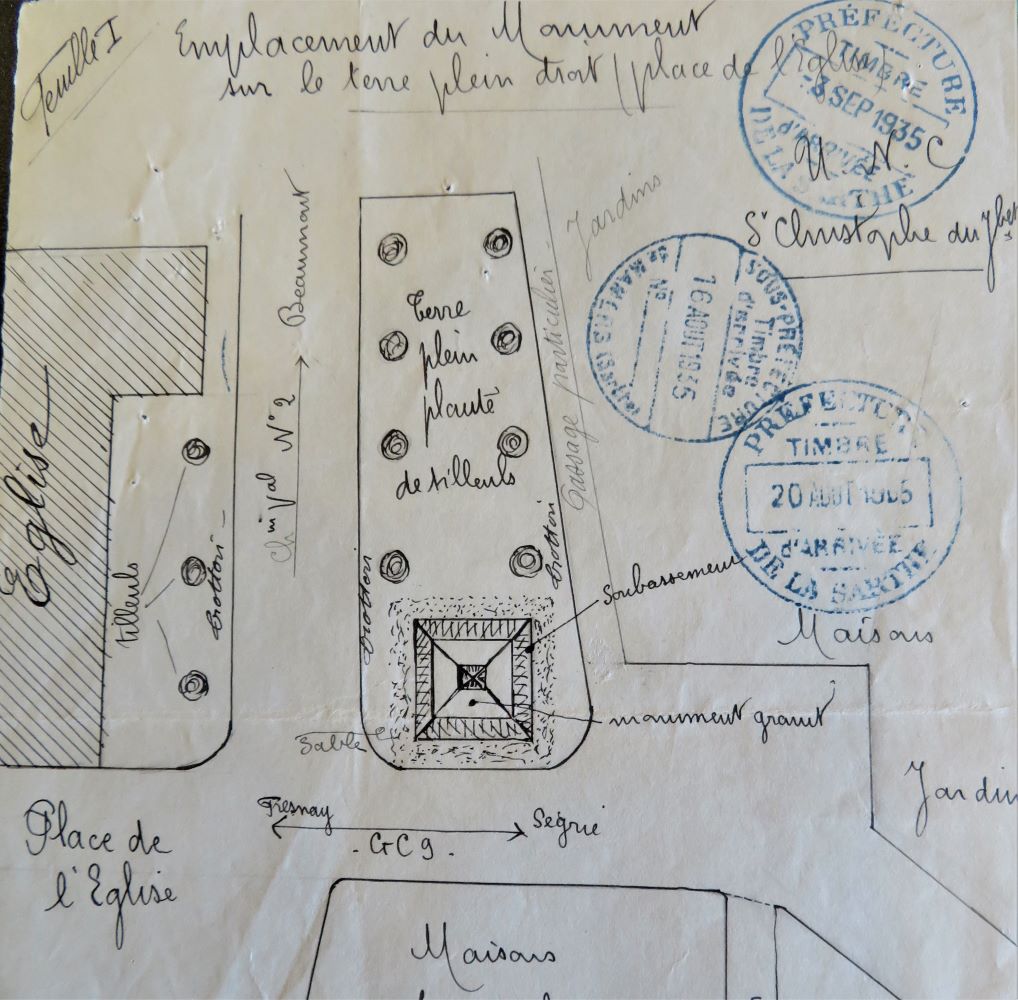 Feuille I
Emplacement du Monument
sur le terre plein droit / place de l'Eglise
PRÉFECTURE
TIMBRE
-3 SEP 1935
d'ARRIVÉE
DE LA SARTHE
U. N. C
St Christophe du Jbet
SOUS-PRÉFECTURE
Timbre
d'arrivée
16 AOUT 1935
No
de MAMERS (Sarthe)
PRÉFECTURE
TIMBRE
20 AOUT 1935
d'ARRIVÉE
DE LA SARTHE
Eglise
tilleuls
trottoir
Chin val No 2
Beaumont
Terre
plein
planté
de tilleuls
trottoir
trottoir
Passage particulier
Jardins
Soubassement
Maisons
monument granit
Sable
Jardin
Place de
l'Eglise
Fresnay
Ségrie
- GC 9 -
Maisons